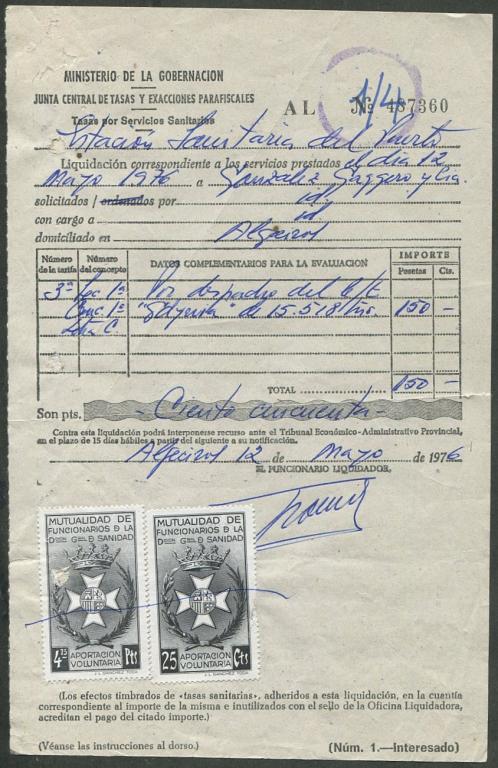 MINISTERIO DE LA GOBERNACION
JUNTA CENTRAL DE TASAS Y EXACCIONES PARAFISCALES
Tasas por Servicios Sanitarios
AL Nº 487360
1/4
Estación Sanitaria del Puerto
Liquidación correspondiente a los servicios prestados el día 12
Mayo 1976 a Gonzalez Gaggero y Cia.
solicitados / ordenados por id
con cargo a id
domiciliado en Algeciras
Número de la tarifa
Número del concepto
DATOS COMPLEMENTARIOS PARA LA EVALUACION
IMPORTE
Pesetas Cts.
3ª Sec. 1ª Por despacho del b/e
Conc. 1º de 15.518 150 —
Letra C.
TOTAL 150 —
Son pts. - Ciento cincuenta -
Contra esta liquidación podrá interponerse recurso ante el Tribunal Económico-Administrativo Provincial,
en el plazo de 15 días hábiles a partir del siguiente a su notificación.
Algeciras 12 de Mayo de 1976
EL FUNCIONARIO LIQUIDADOR,
MUTUALIDAD DE
FUNCIONARIOS D LA
D.on G.ral D SANIDAD
APORTACION
4,75 VOLUNTARIA Pts
J-L. SANCHEZ TODA
MUTUALIDAD DE
FUNCIONARIOS D LA
D.on G.ral D SANIDAD
APORTACION
25 VOLUNTARIA Cts
J-L. SANCHEZ TODA
(Los efectos timbrados de «tasas sanitarias», adheridos a esta liquidación, en la cuantía
correspondiente al importe de la misma e inutilizados con el sello de la Oficina Liquidadora,
acreditan el pago del citado importe.)
(Véanse las instrucciones al dorso.)
(Núm. 1.—Interesado)